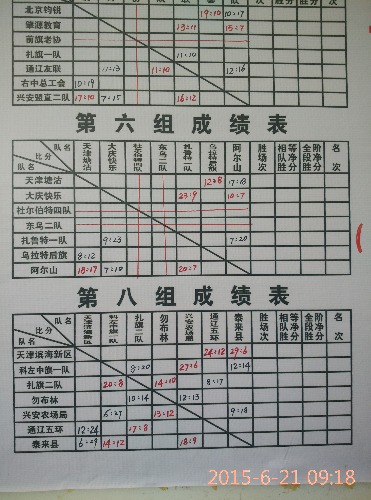 北京钓镇 19:10 10:17
肇源教育 13:11 15:7
前旗老协
扎旗一队 11:10
通辽友联 11:13 11:10 12:16
右中总工会 10:19
兴安盟直二队 17:10 7:15 16:12
第六组成绩表
队名 比分 队名 天津塘沽 大庆快乐 杜尔伯特四队 东乌二队 扎鲁特一队 乌拉特后旗 阿尔山 胜场次 相等队净胜分 全阶段净胜分 名次
天津塘沽 12:8 17:18
大庆快乐 23:9 10:7
杜尔伯特四队
东乌二队
扎鲁特一队 9:23 7:20
乌拉特后旗 8:12
阿尔山 18:17 7:10 20:7
第八组成绩表
队名 比分 队名 天津滨海新区 科左中旗一队 扎旗二队 勿布林 兴安农场局 通辽五环 泰来县 胜场次 名次
天津滨海新区 24:12 29:6
科左中旗一队 8:20 27:6 12:14
扎旗二队 20:8 14:10 8:17
勿布林 10:14 12:13
兴安农场局 6:27 13:12 9:18
通辽五环 12:24 17:8
泰来县 6:29 14:12 18:9
2015-6-21 09:18